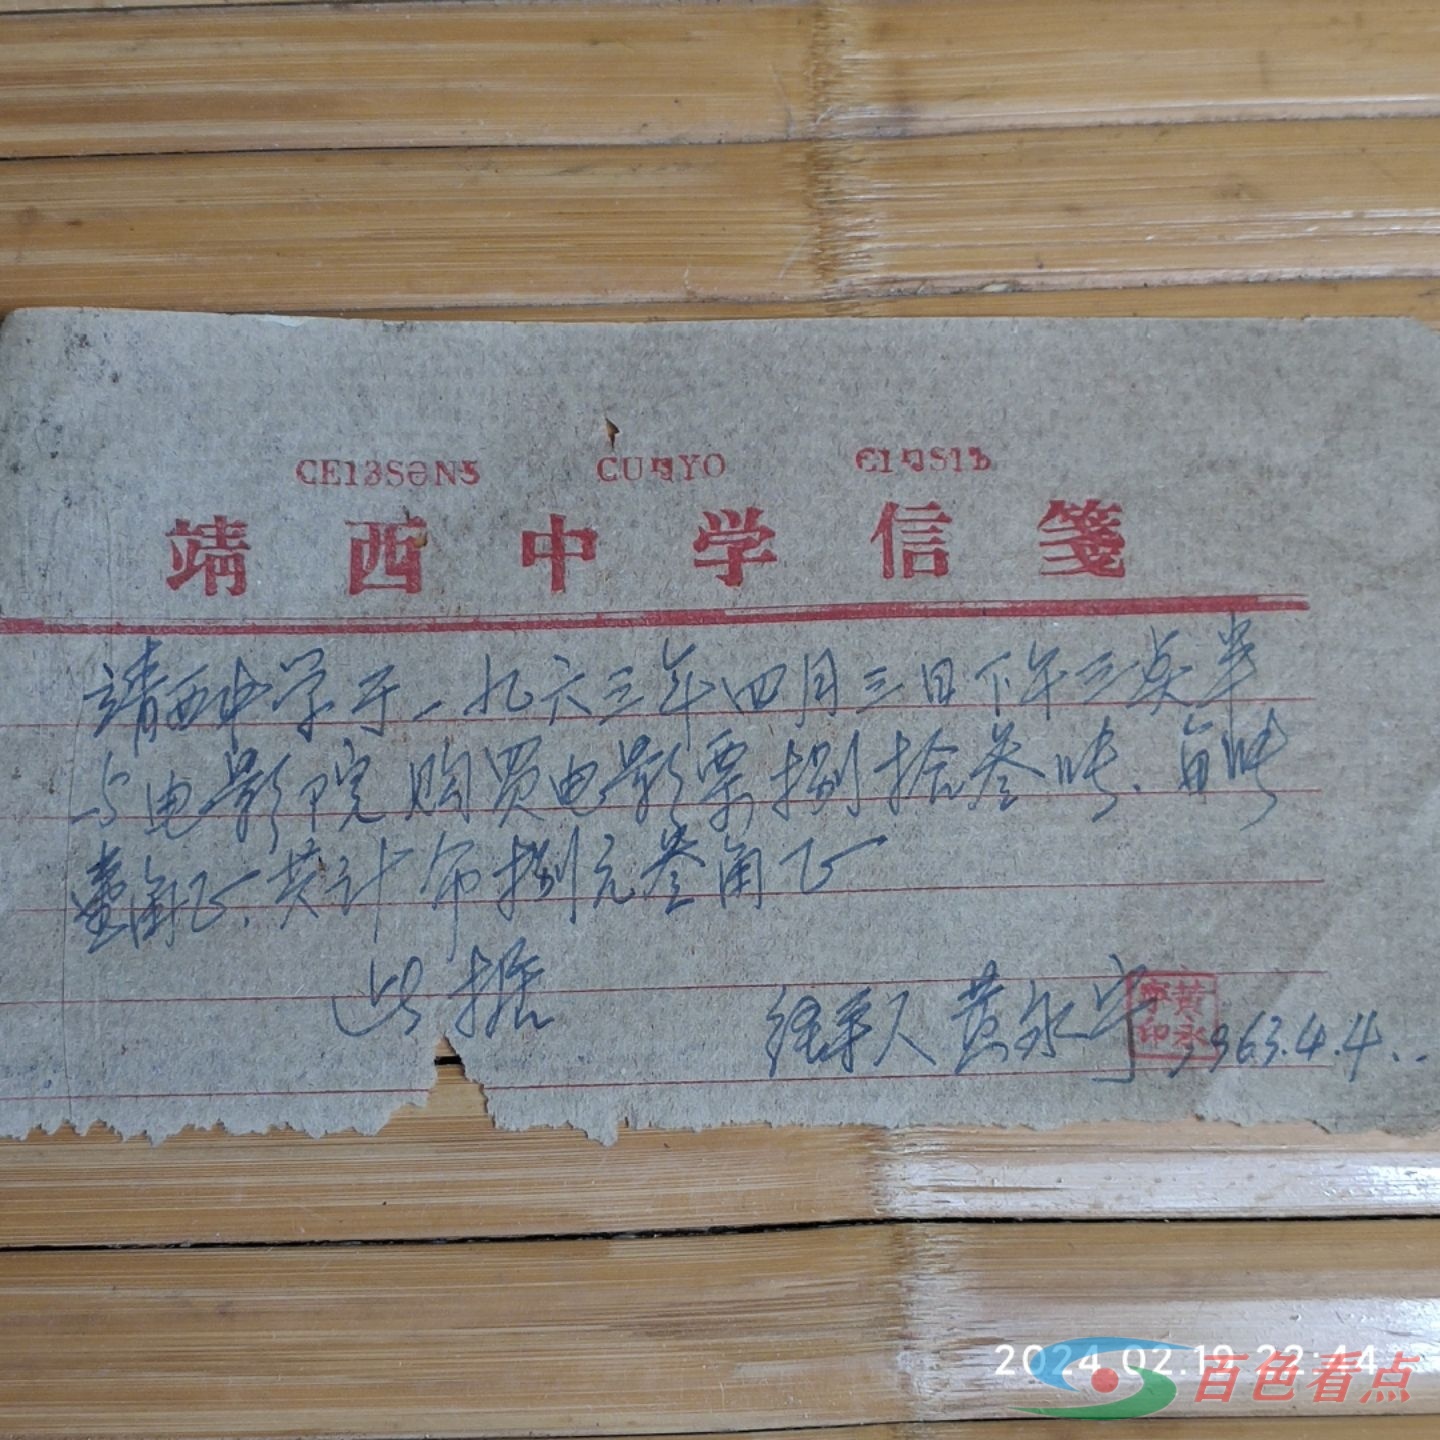 CE13SƏN5 CUŋYO
靖西中学信笺
靖西中学于一九六三年四月三日下午三点半
与电影院购买电影票捌拾叁张.每张
壹角正.共计币捌元叁角正
此据
经手人 黄永宁 1963.4.4..
黄永宁印
2024.02.19 22:44
百色看点